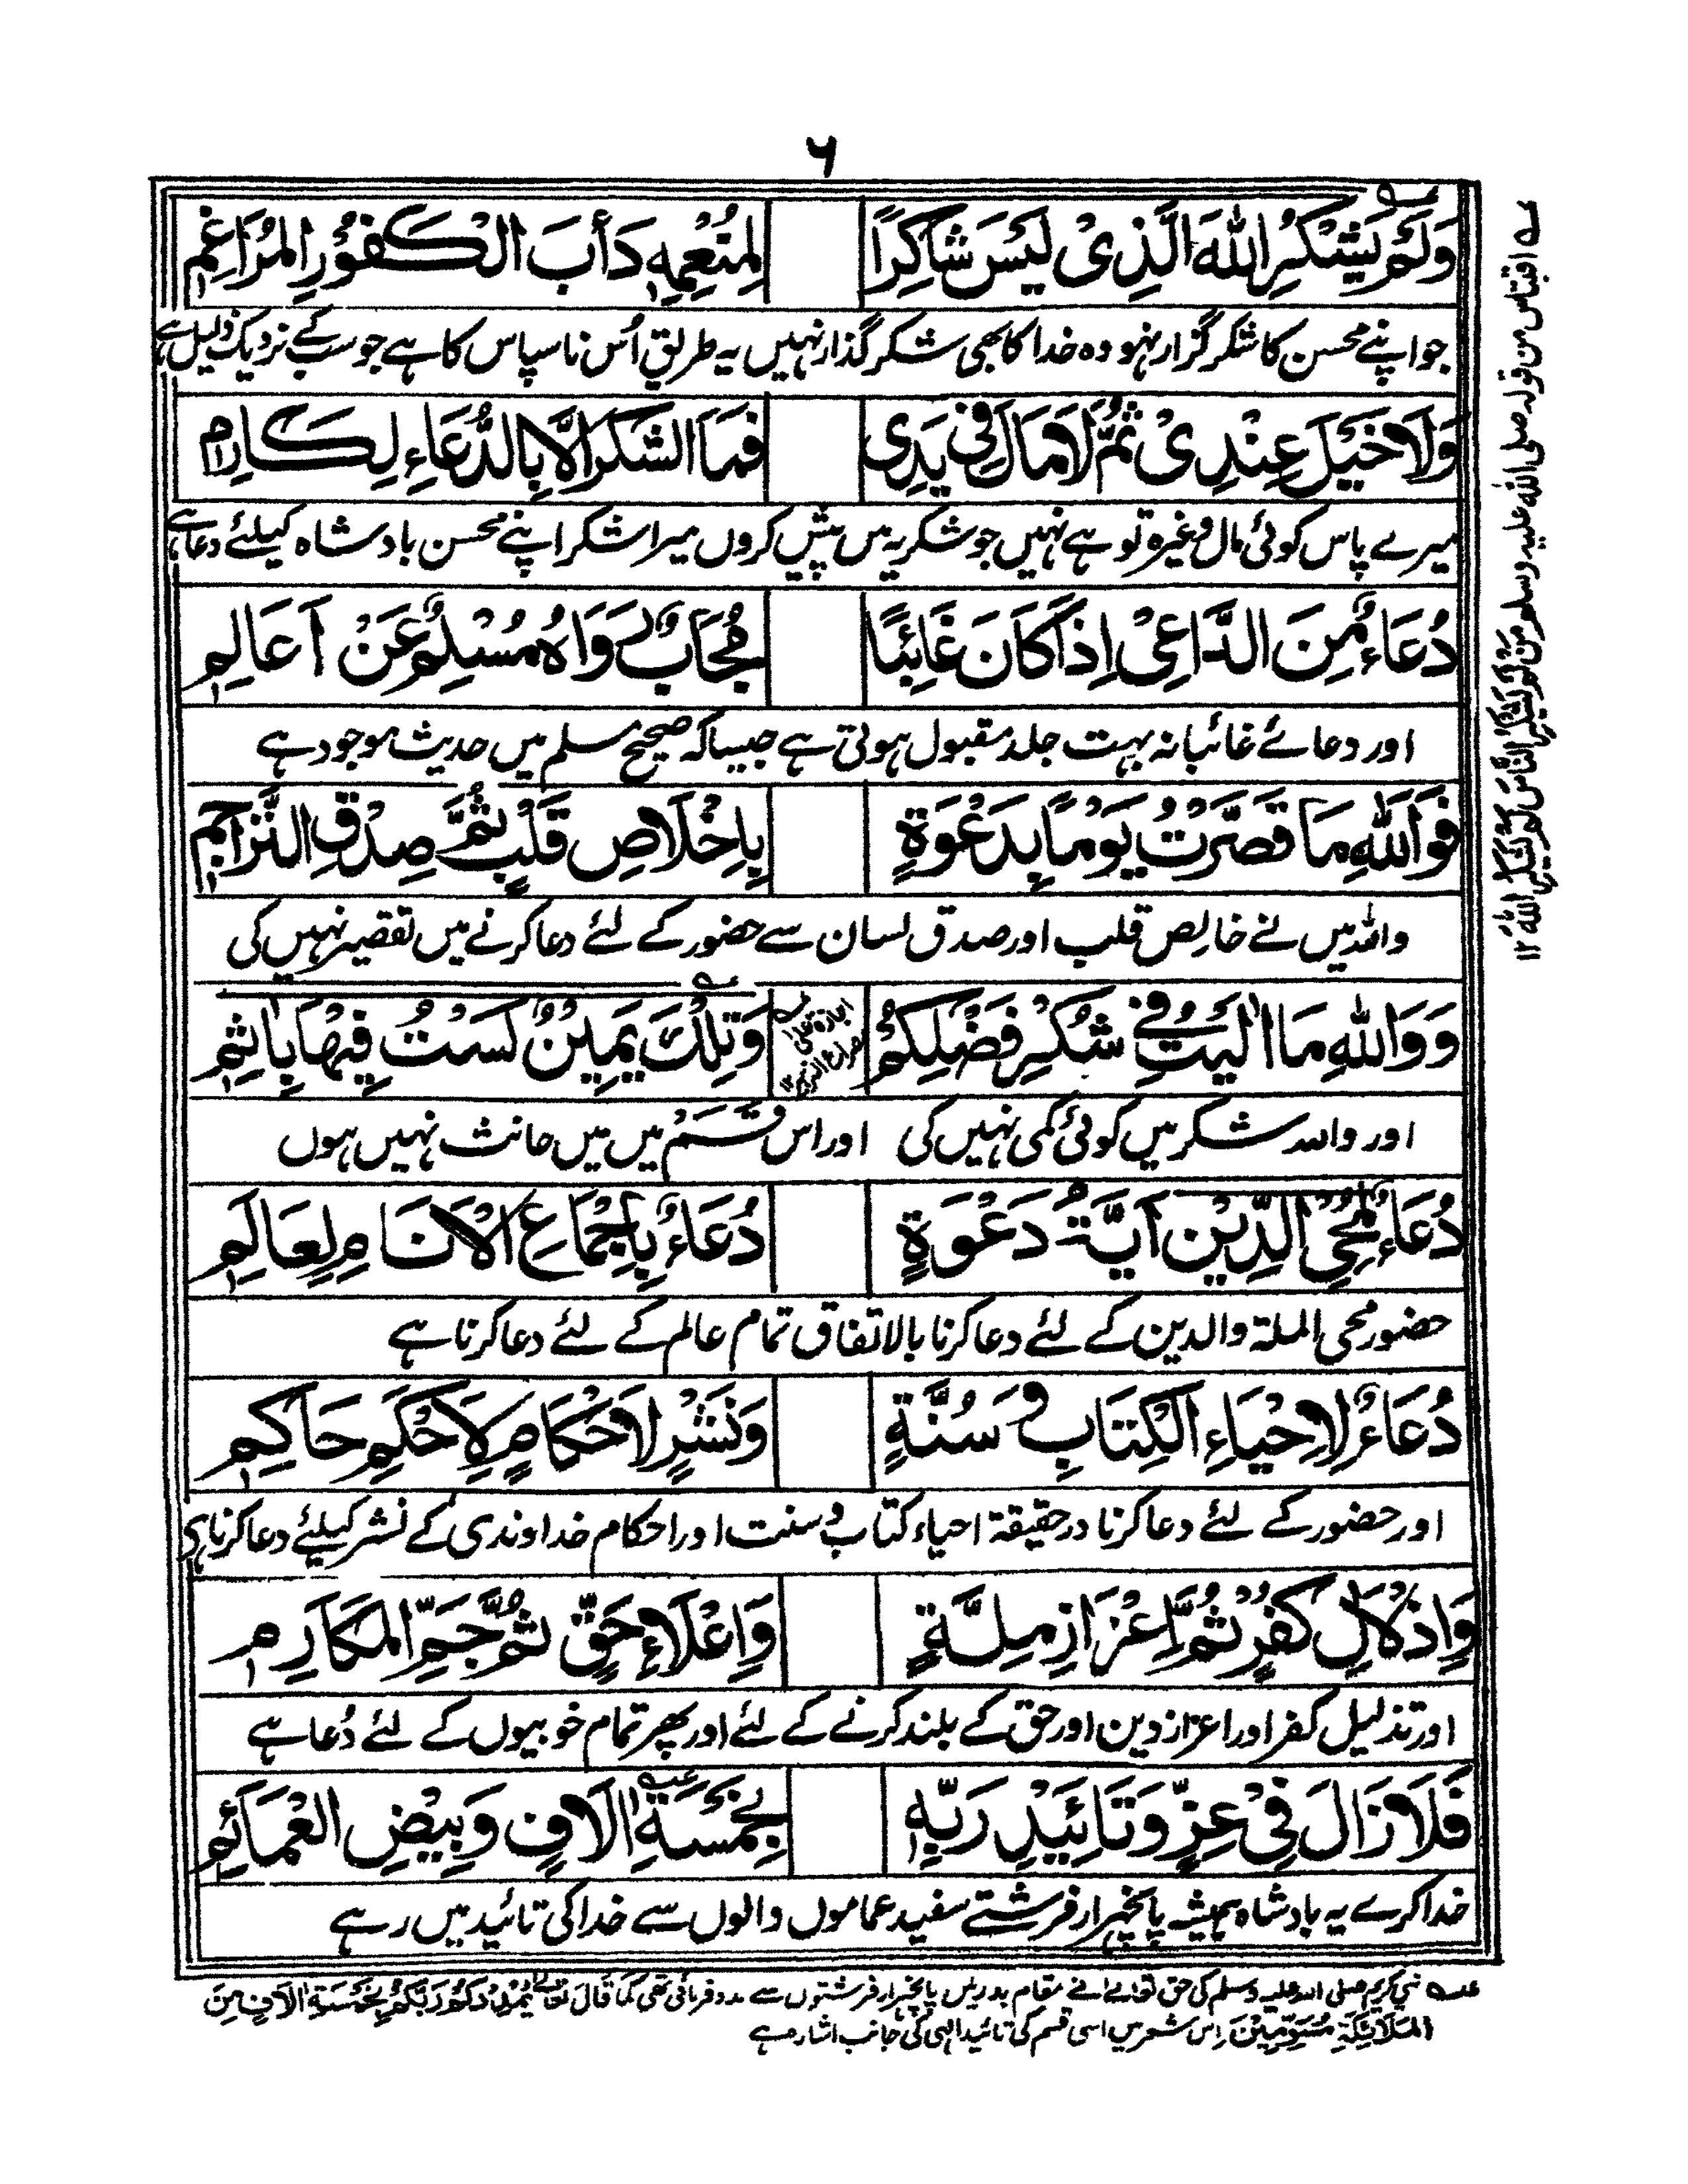 ۶
وَلَمْ يَشْكُرِ اللّٰهَ الَّذِىْ لَيْسَ شَاكِرًا لِمُنْعِمِهٖ دَأْبَ الْكَفُوْرِ الْمُرَاغِمٖ
جو اپنے محسن کا شکر گزار نہو وہ خدا کا بھی شکر گذار نہیں یہ طریق اُس ناسپاس کا ہے جو سب کے نزدیک ذلیل ہے
وَلَا خَيْلَ عِنْدِىْ ثُمَّ لَا مَالَ فِىْ يَدِىْ فَمَا الشُّكْرُ اِلَّا بِالدُّعَاءِ لِكَارِمٖ
میرے پاس کوئی مال وغیرہ تو ہے نہیں جو شکریہ میں پیش کروں میرا شکر اپنے محسن بادشاہ کیلئے دعا ہے
دُعَاءٌ مِنَ الدَّاعِىْ اِذَا كَانَ غَائِبًا مُجَابٌ رَوَاهُ مُسْلِمٌ عَنْ اَعَالِمٖ
اور دعائے غائبانہ بہت جلد مقبول ہوتی ہے جیساکہ صحیح مسلم میں حدیث موجود ہے
فَوَاللّٰهِ مَا قَصَّرْتُ يَوْمًا بِدَعْوَةٍ بِاِخْلَاصِ قَلْبٍ ثُمَّ صِدْقِ التَّرَاجِمٖ
واللہ میں نے خالص قلب اور صدق لسان سے حضور کے لئے دعا کرنے میں تقصیر نہیں کی
وَوَاللّٰهِ مَا اٰلَيْتُ فِىْ شُكْرِ فَضْلِكُمْ وَتِلْكَ يَمِيْنٌ لَسْتُ فِيْهَا بِاٰثِمٖ
اور واللہ شکر میں کوئی کمی نہیں کی اور اس قسم میں میں حانث نہیں ہوں
دُعَاءٌ لِمُحْىِ الدِّيْنِ اَيَّةُ دَعْوَةٍ دُعَاءٌ بِاِجْمَاعِ الْاَنَامِ لِعَالَمٖ
حضور محی الملۃ والدین کے لئے دعا کرنا بالاتفاق تمام عالم کے لئے دعا کرنا ہے
دُعَاءٌ لِاِحْيَاءِ الْكِتَابِ وَسُنَّةٍ وَنَشْرٍ لِاَحْكَامٍ لِاَحْكَمِ حَاكِمٖ
اور حضور کے لئے دعا کرنا درحقیقۃ احیاء کتاب و سنت اور احکام خداوندی کے نشر کیلئے دعا کرنا ہی
وَاِذْلَالِ كُفْرٍ ثُمَّ اِعْزَازِ مِلَّةٍ وَاِعْلَاءِ حَقٍّ ثُمَّ جَمِّ الْمَكَارِمٖ
اور تذلیل کفر اور اعزاز دین اور حق کے بلند کرنے کے لئے اور پھر تمام خوبیوں کے لئے دُعا ہے
فَلَا زَالَ فِىْ عِزٍّ وَتَائِيْدِ رَبِّهٖ بِخَمْسَةِ اٰلَافٍ وَبِيْضِ الْعَمَائِمٖ
خدا کرے یہ بادشاہ ہمیشہ پانچہزار فرشتے سفید عماموں والوں سے خدا کی تائید میں رہے
عہ نبی کریم صلی اللہ علیہ وسلم کی حق تعالےٰ نے مقام بدر میں پانچہزار فرشتوں سے مدد فرمائی تھی کَمَا قَالَ تَعَالٰی يُمْدِدْكُمْ رَبُّكُمْ بِخَمْسَةِ اٰلَافٍ مِنَ
الْمَلَائِكَةِ مُسَوِّمِيْنَ اِس شعر میں اسی قسم کی تائید الٰہی کی جانب اشارہ ہے
عہ اقتباس من قوله صلى الله عليه وسلم مَنْ لَمْ يَشْكُرِ النَّاسَ لَمْ يَشْكُرِ اللّٰهَ ۱۲